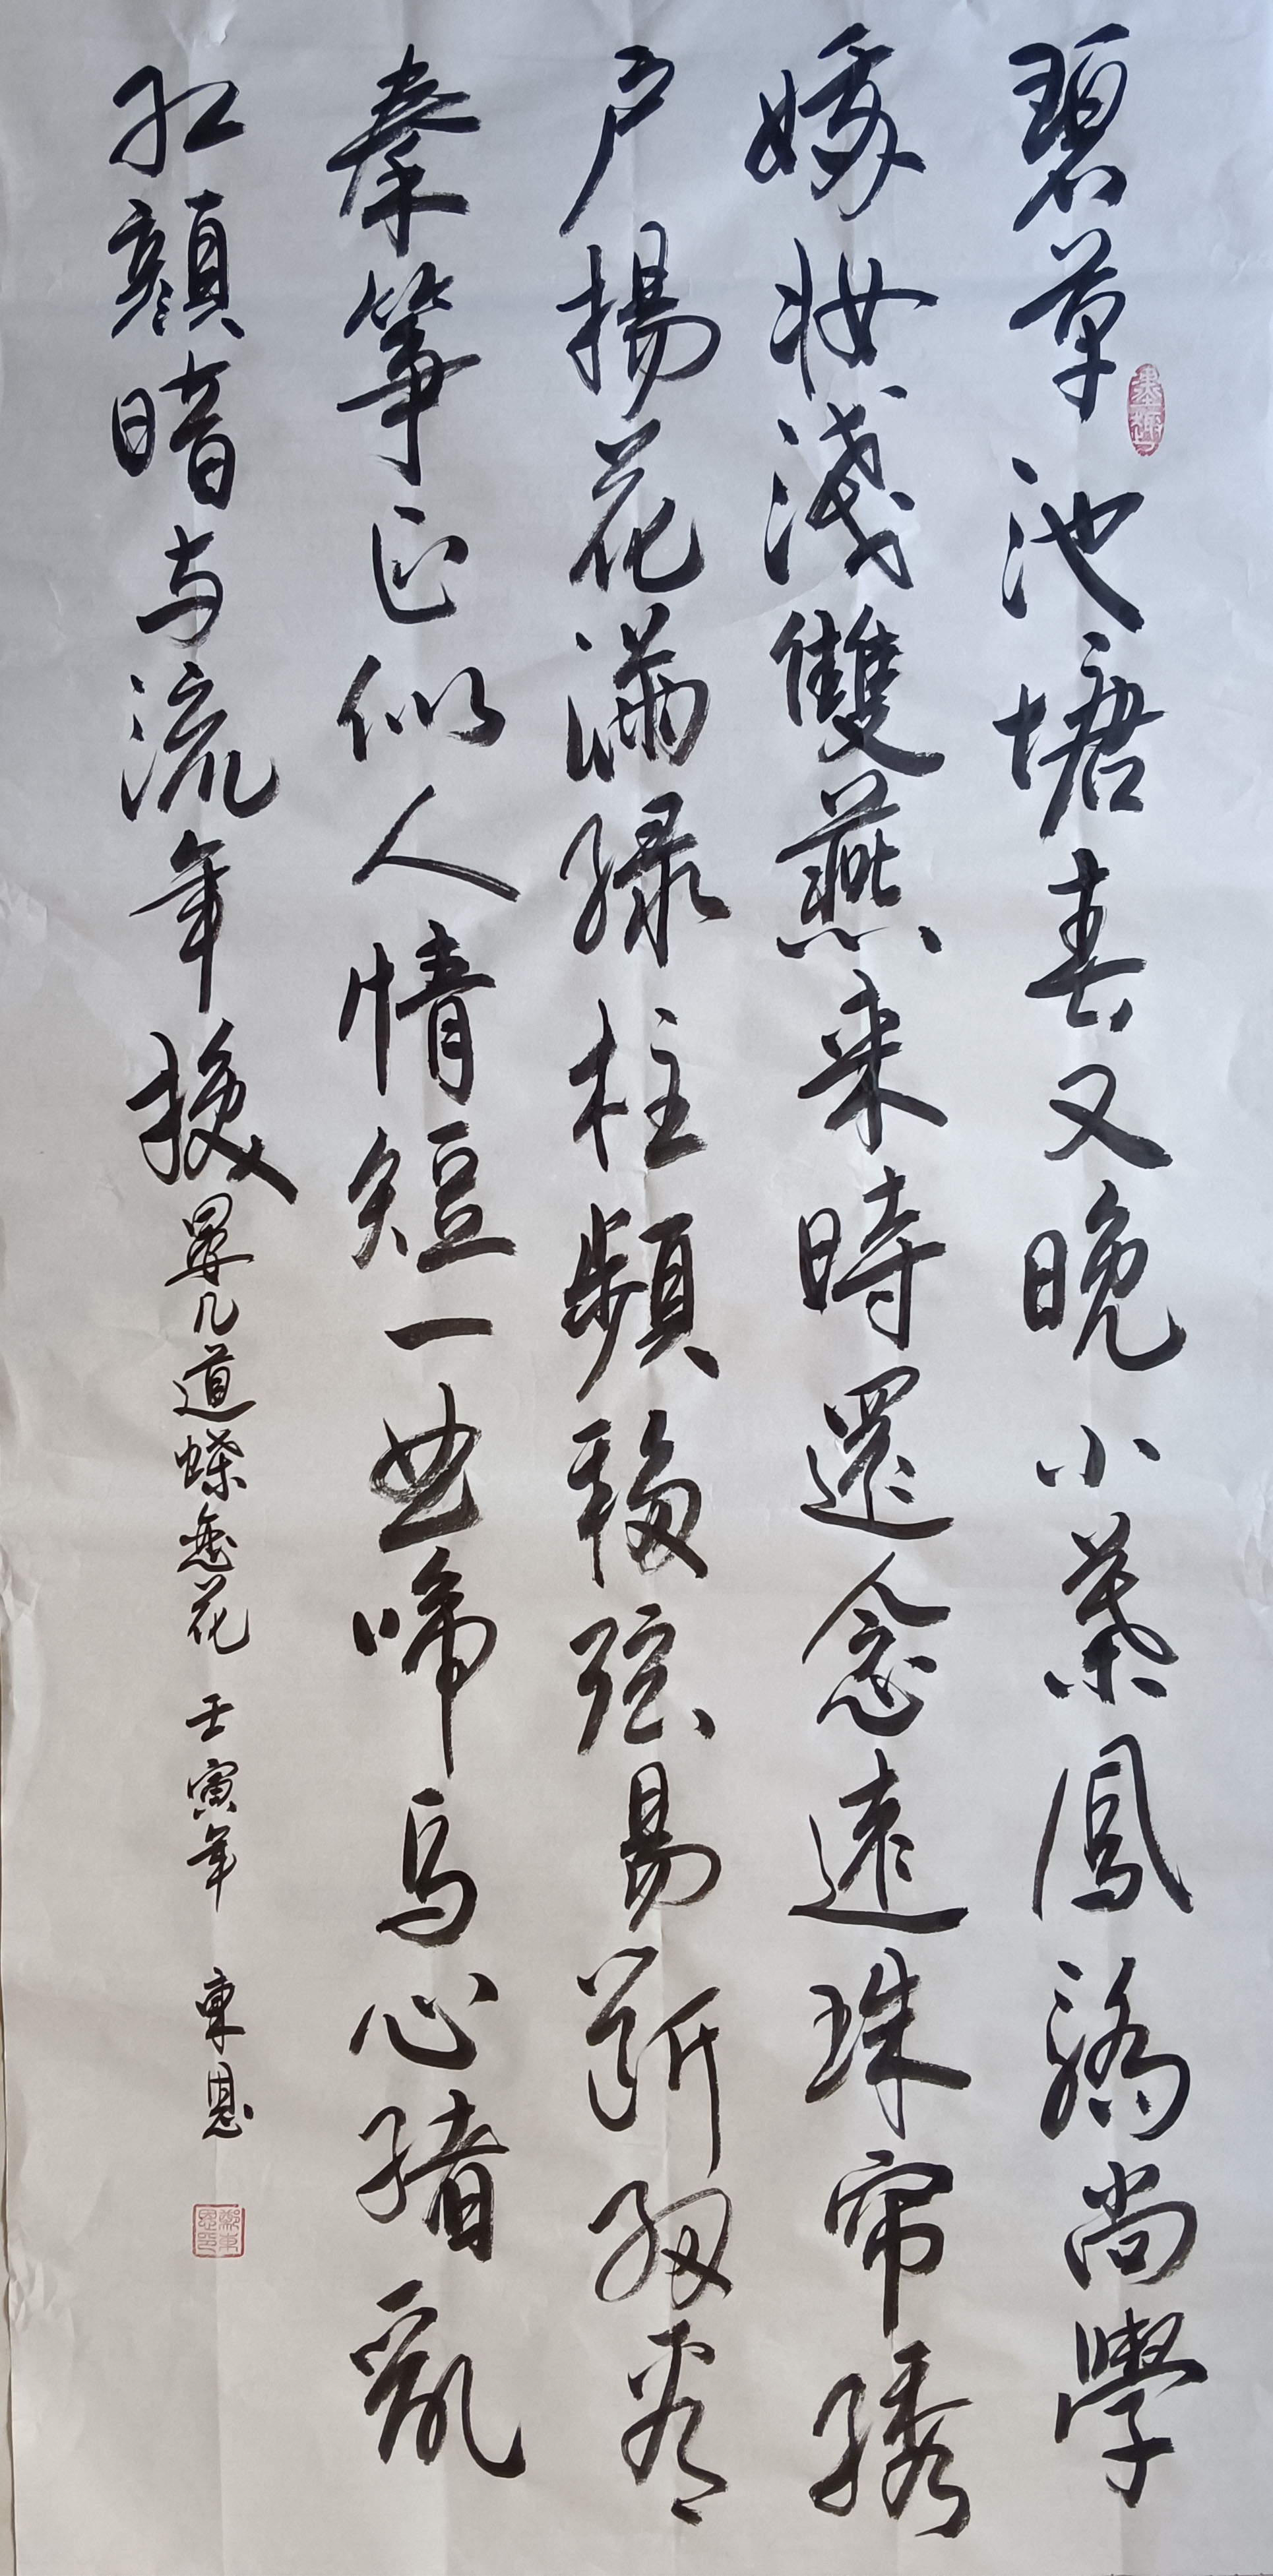 碧草池塘春又晚小葉鳳嬌尚學
娥妝淺雙燕來時還念遠珠帘綉
戶揚花滿綠柱頻移弦易斷細看
秦箏正似人情短一曲啼烏心緒亂
紅顏暗与流年换晏几道蝶恋花 壬寅年 東恩
墨趣
鄭東恩印